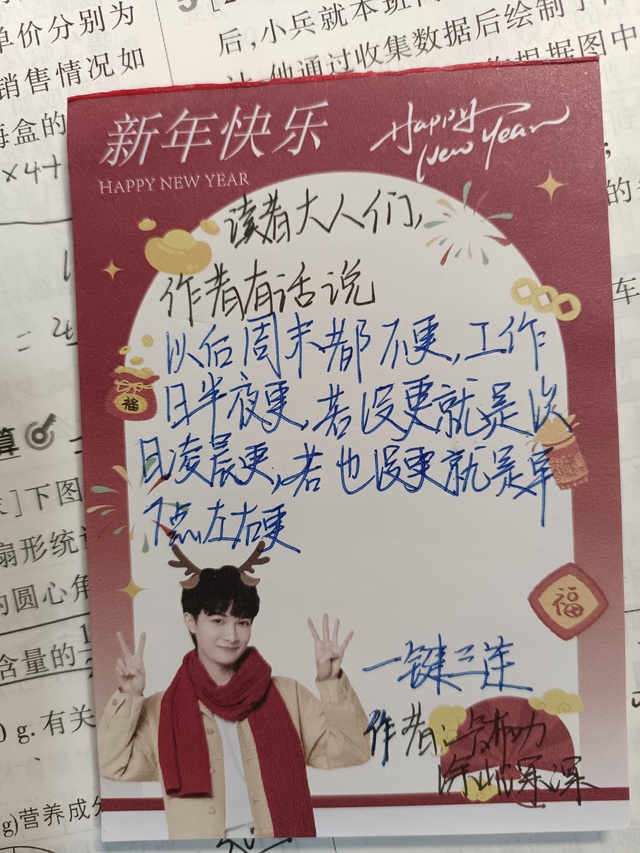 单价分别为
销售情况如
每盒的
×4+
后,小兵就本班同
他通过收集数据后绘制了
根据图中
车
新年快乐
HAPPY NEW YEAR
Happy
New Year
读者大人们,
作者有话说
以后周末都不更,工作
日半夜更,若没更就是次
日凌晨更,若也没更就是早
7点左右更
福
福
一键三连
作者:
深深
算
下图
扇形统
的圆心角
含量的
g.有关
g)营养成分